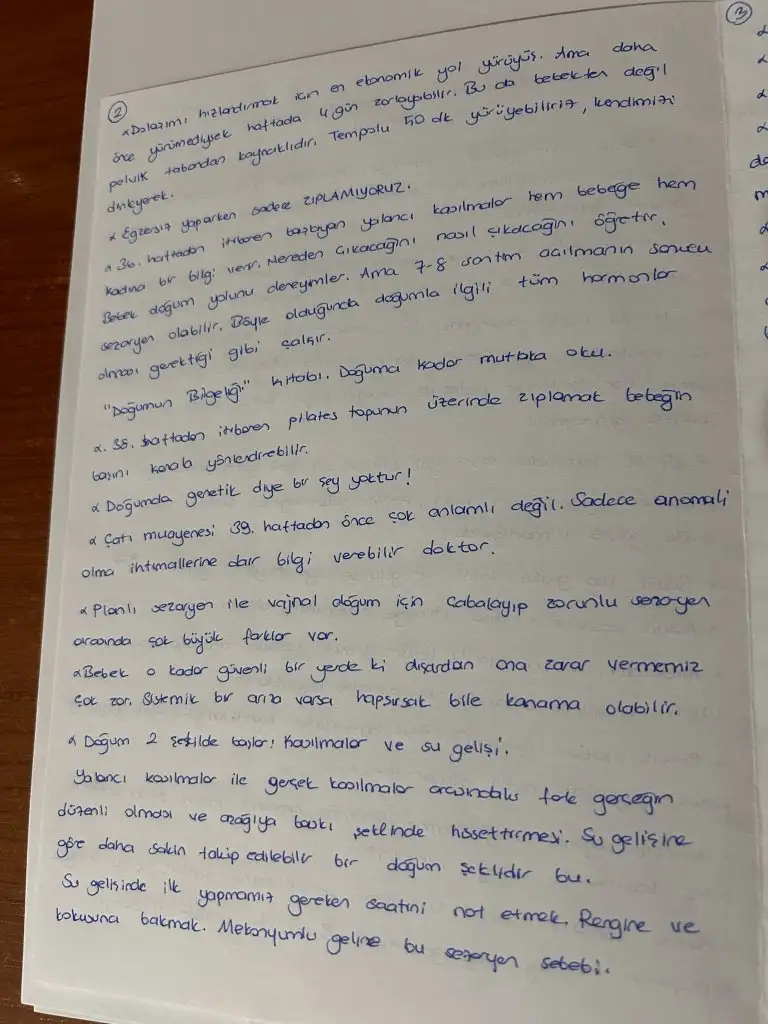 ②
* Dolaşımı hızlandırmak için en ekonomik yol yürüyüş. Ama daha
önce yürümediysek haftada 4 gün zorlayabilir. Bu da bebekten değil
pelvik tabandan kaynaklıdır. Tempolu 50 dk yürüyebiliriz, kendimizi
dinleyerek.
* Egzersiz yaparken sadece ZIPLAMIYORUZ.
* 36. haftadan itibaren başlayan yalancı kasılmalar hem bebeğe hem
kadına bir bilgi verir. Nereden çıkacağını nasıl çıkacağını öğretir.
Bebek doğum yolunu deneyimler. Ama 7-8 santim açılmanın sonucu
sezaryen olabilir. Böyle olduğunda doğumla ilgili tüm hormonlar
olması gerektiği gibi çalışır.
"Doğumun Bilgeliği" kitabı. Doğuma kadar mutlaka oku.
* 38. haftadan itibaren pilates topunun üzerinde zıplamak bebeğin
başını kanala yönlendirebilir.
* Doğumda genetik diye bir şey yoktur!
* Çatı muayenesi 39. haftadan önce çok anlamlı değil. Sadece anomali
olma ihtimallerine dair bilgi verebilir doktor.
* Planlı sezaryen ile vajinal doğum için çabalayıp zorunlu sezaryen
arasında çok büyük farklar var.
* Bebek o kadar güvenli bir yerde ki dışardan ona zarar vermemiz
çok zor. Sistemik bir arıza varsa hapşırsak bile kanama olabilir.
* Doğum 2 şekilde başlar: Kasılmalar ve su gelişi.
Yalancı kasılmalar ile gerçek kasılmalar arasındaki fark gerçeğin
düzenli olması ve aşağıya baskı şeklinde hissettirmesi. Su gelişine
göre daha sakin takip edilebilir bir doğum şeklidir bu.
Su gelişinde ilk yapmamız gereken saatini not etmek. Rengine ve
kokusuna bakmak. Mekonyumlu gelirse bu sezaryen sebebi.
③